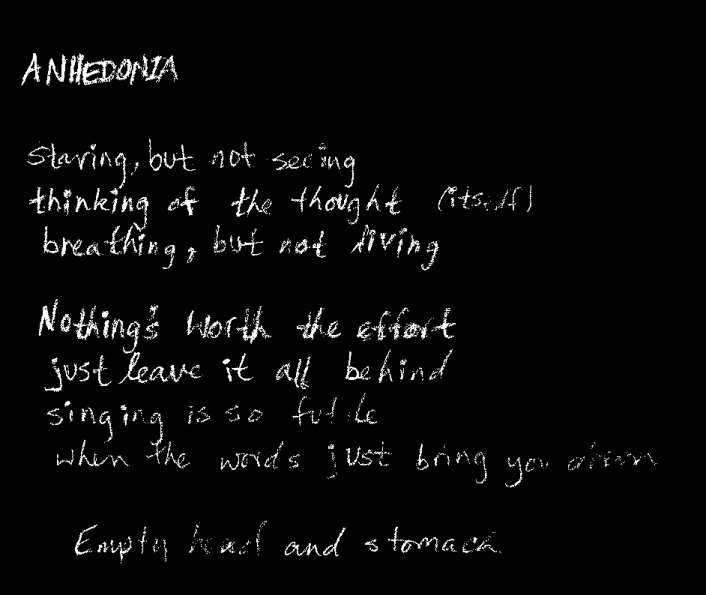 ANHEDONIA
Staring, but not seeing
thinking of the thought (itself)
breathing, but not living
Nothing's worth the effort
just leave it all behind
singing is so futile
when the words just bring you down
Empty head and stomach